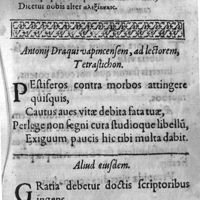 Dicetur nobis alter ἀλεξίκακος.
Antonij Draqui vapincensem, ad lectorem,
Tetrastichon.
PEstiferos contra morbos attingere
quisquis,
Cautus aues vitæ debita fata tuæ,
Perlege non segni cura studioque libellũ,
Exiguum paucis hic tibi multa dabit.
Aliud eiusdem.
GRatia debetur doctis scriptoribus
ingens